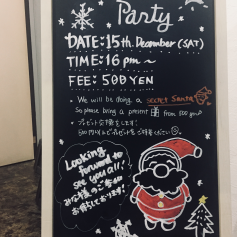 Party
DATE: 15th. December (SAT)
TIME: 16 pm ~
FEE: 500 YEN
• We will be doing a Secret Santa
So please bring a present from 500 yen
• プレゼント交換をします!
500円くらいのプレゼントをご持参ください
Looking
forward to
see you all!
みな様のご参加
お待ちしております!